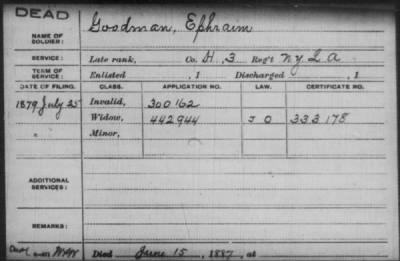 DEAD
NAME OF SOLDIER: Goodman, Ephraim
SERVICE: Late rank, Co. H, 3 Reg't N.Y. L. A
TERM OF SERVICE: Enlisted , 1 Discharged , 1
DATE OF FILING. CLASS. APPLICATION NO. LAW. CERTIFICATE NO.
1879 July 25 Invalid, 300162
" Widow, 442944 J O 333178
Minor,
ADDITIONAL SERVICES:
REMARKS:
Died June 15, 1887, at